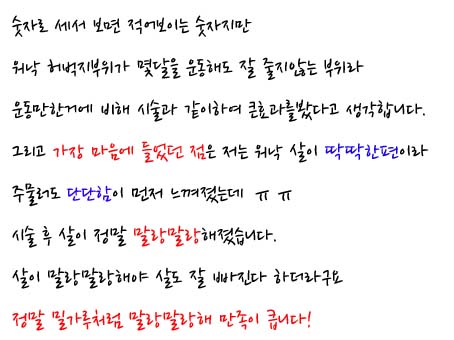 숫자로 세서 보면 적어보이는 숫자지만
워낙 허벅지부위가 몇달을 운동해도 잘 줄지않는 부위라
운동만한거에 비해 시술과 같이하여 큰효과를봤다고 생각합니다.
그리고 가장 마음에 들었던 점은 저는 워낙 살이 딱딱한편이라
주물러도 단단함이 먼저 느껴졌는데 ㅠ ㅠ
시술 후 살이 정말 말랑말랑해졌습니다.
살이 말랑말랑해야 살도 잘 빠진다 하더라구요
정말 밀가루처럼 말랑말랑해 만족이 큽니다!